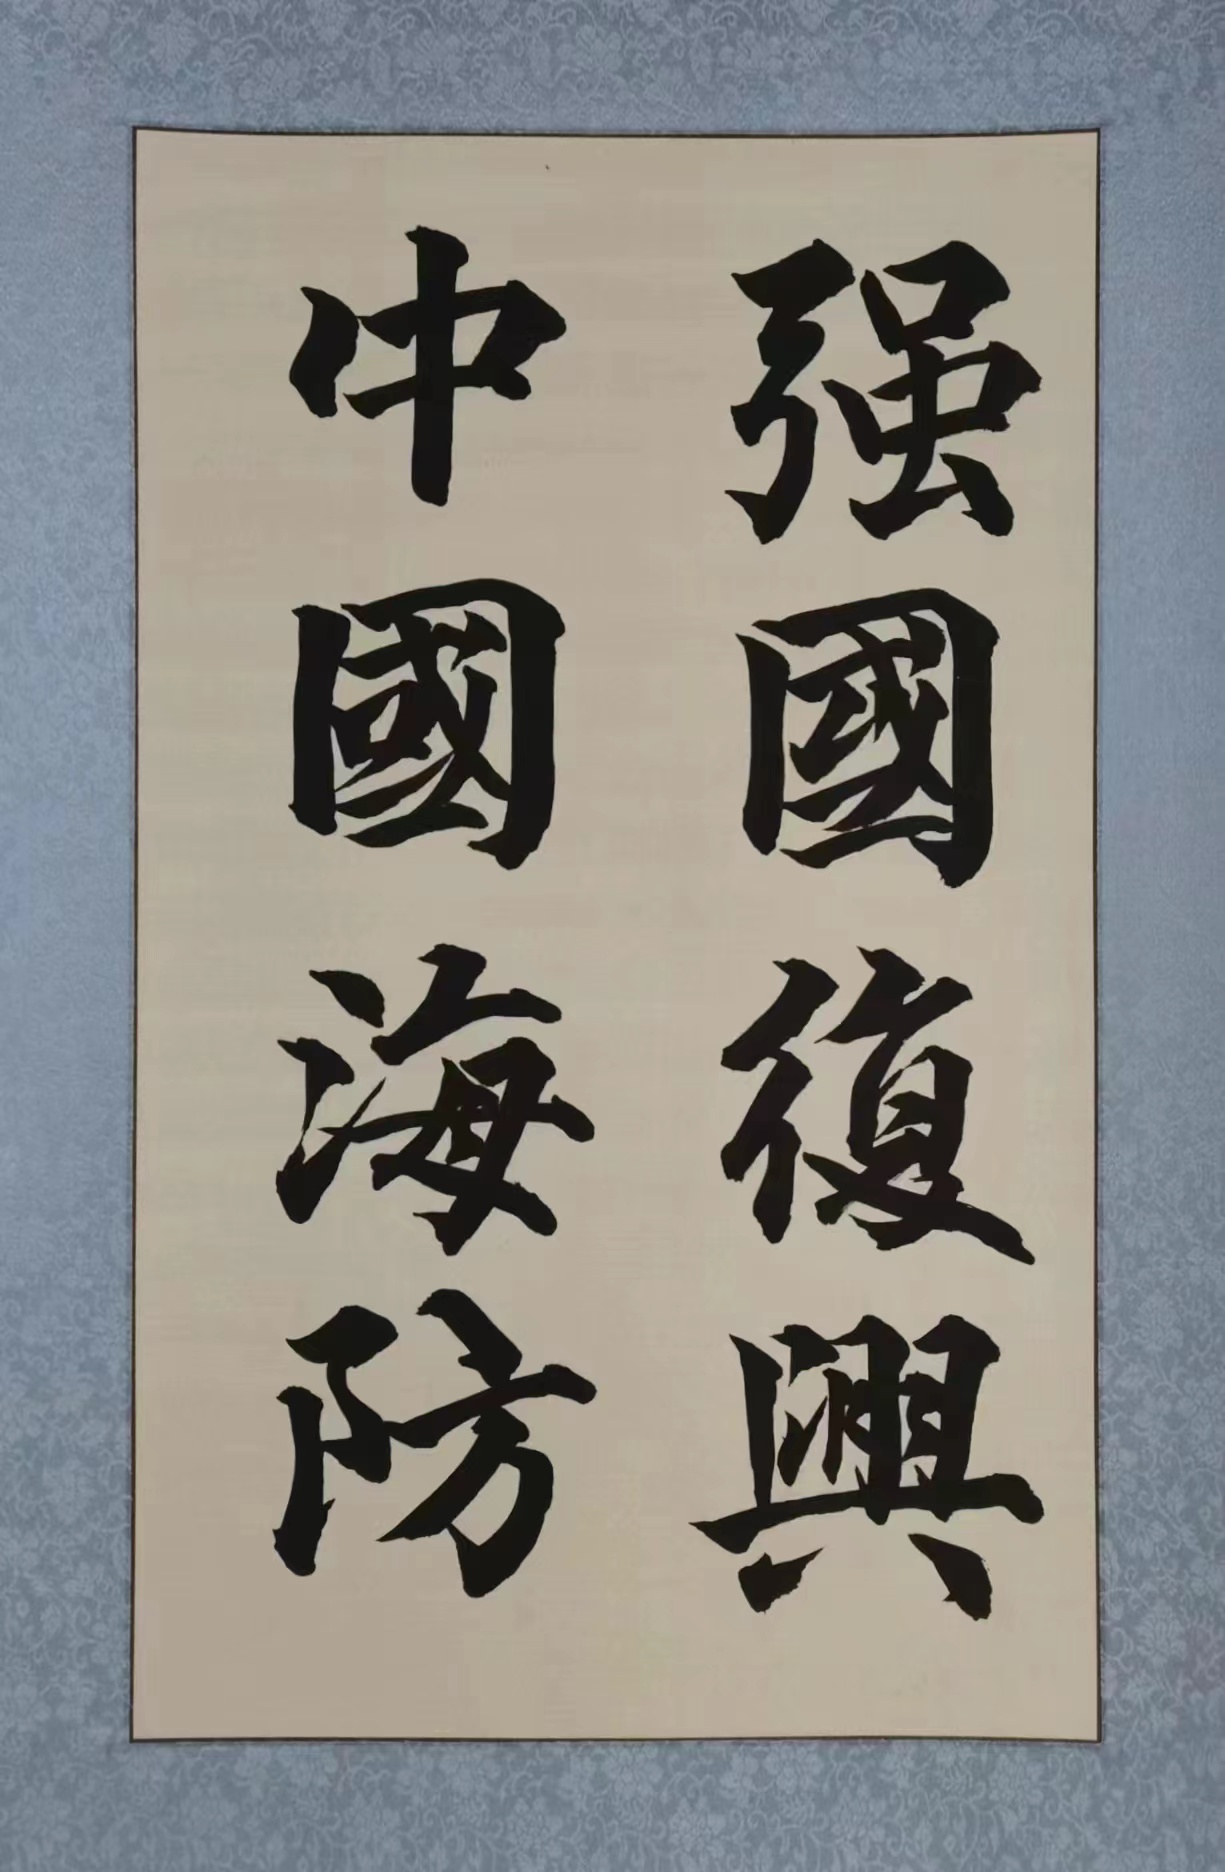 强國復興
中國海防